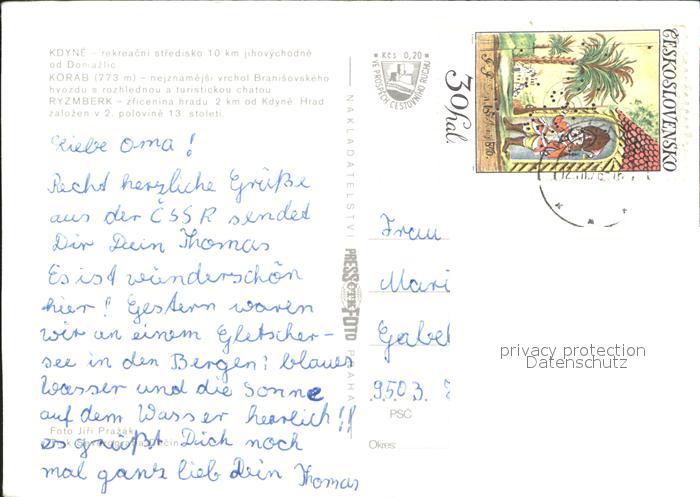 KDYNĚ – rekreační středisko 10 km jihovýchodně
od Domažlic
KORÁB (773 m) – nejznámější vrchol Branišovského
hvozdu s rozhlednou a turistickou chatou
RÝZMBERK – zřícenina hradu 2 km od Kdyně. Hrad
založen v 2. polovině 13. století.
Liebe Oma!
Recht herzliche Grüße
aus der ČSSR sendet
Dir Dein Thomas
Es ist wunderschön
hier! Gestern waren
wir an einem Gletscher-
see in den Bergen: blaues
Wasser und die Sonne
auf dem Wasser herrlich!!
es grüßt Dich noch
mal ganz lieb Dein Thomas
Foto Jiří Pražák
NAKLADATELSTVÍ
PRESSFOTO
PRAHA
Kčs 0,20
VE PROSPĚCH CESTOVNÍHO RUCHU
30 hal.
ČESKOSLOVENSKO
Frau
Mari
Gabel
9503
PSČ
Okres:
privacy protection
Datenschutz